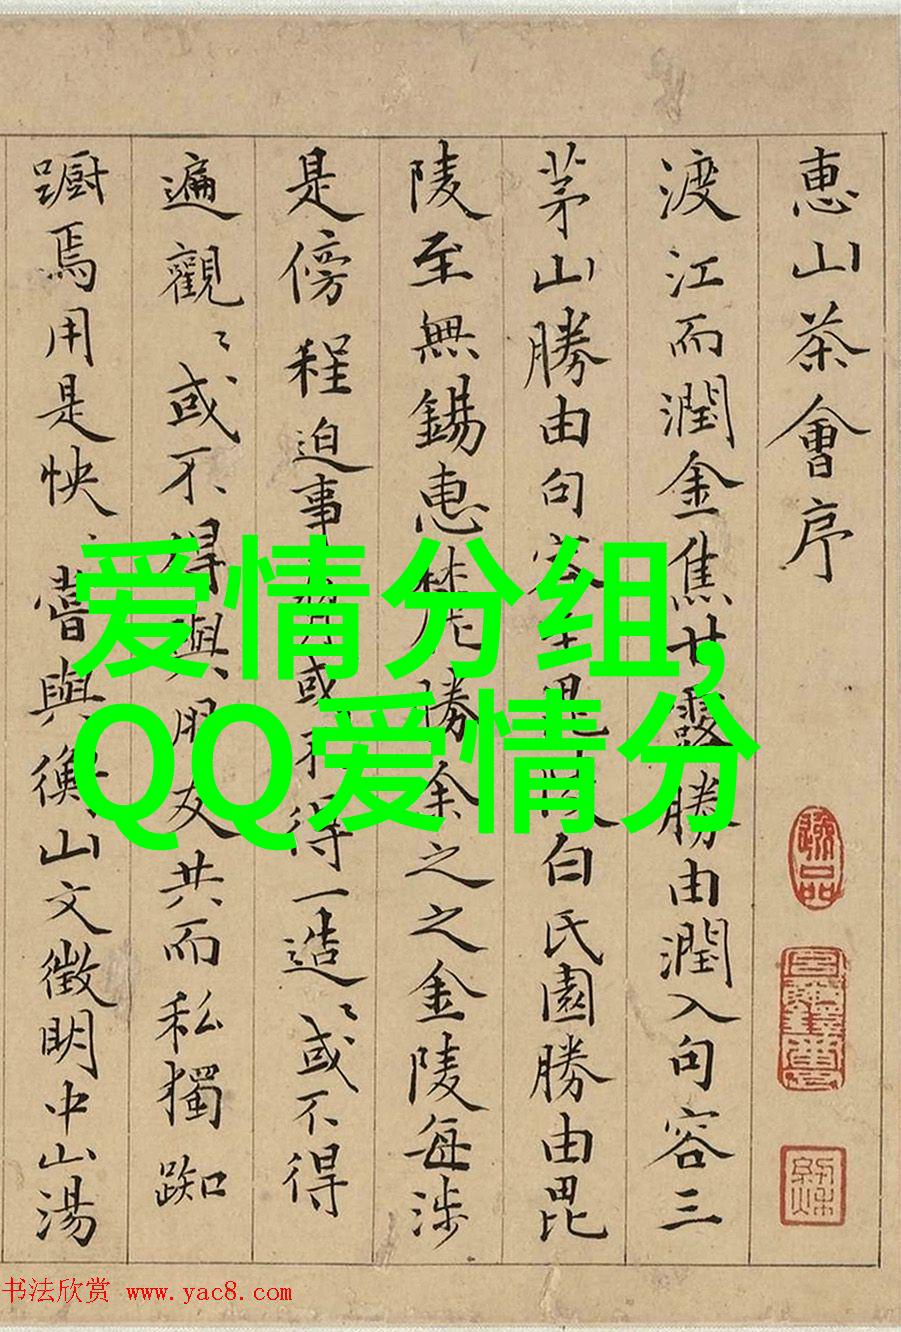 恵山茶會序
渡江而潤金焦甘露勝由潤入句容三
茅山勝由句容至毘陵白氏園勝由毘
陵至無錫惠麓勝余之之金陵每涉
是傍程迫事或不得一造〻或不得
遍觀〻或不得與朋友共而私獨踟
蹰焉用是怏〻嘗與衡山文徵明中山湯
爱情分组,
QQ爱情分
书法欣赏 www.yac8.com